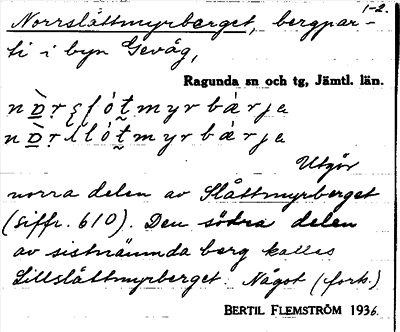 1-2.
Norrslåttmyrberget, bergpar-
ti i byn Gevåg,
Ragunda sn och tg, Jämtl. län.
myrbárja
myrbárja
Utgör
norra delen av Slåttmyrberget
(siffr. 610). Den södra delen
av sistnämnda berg kallas
Lillslåttmyrberget. Något (forts.)
BERTIL FLEMSTRÖM 1936.